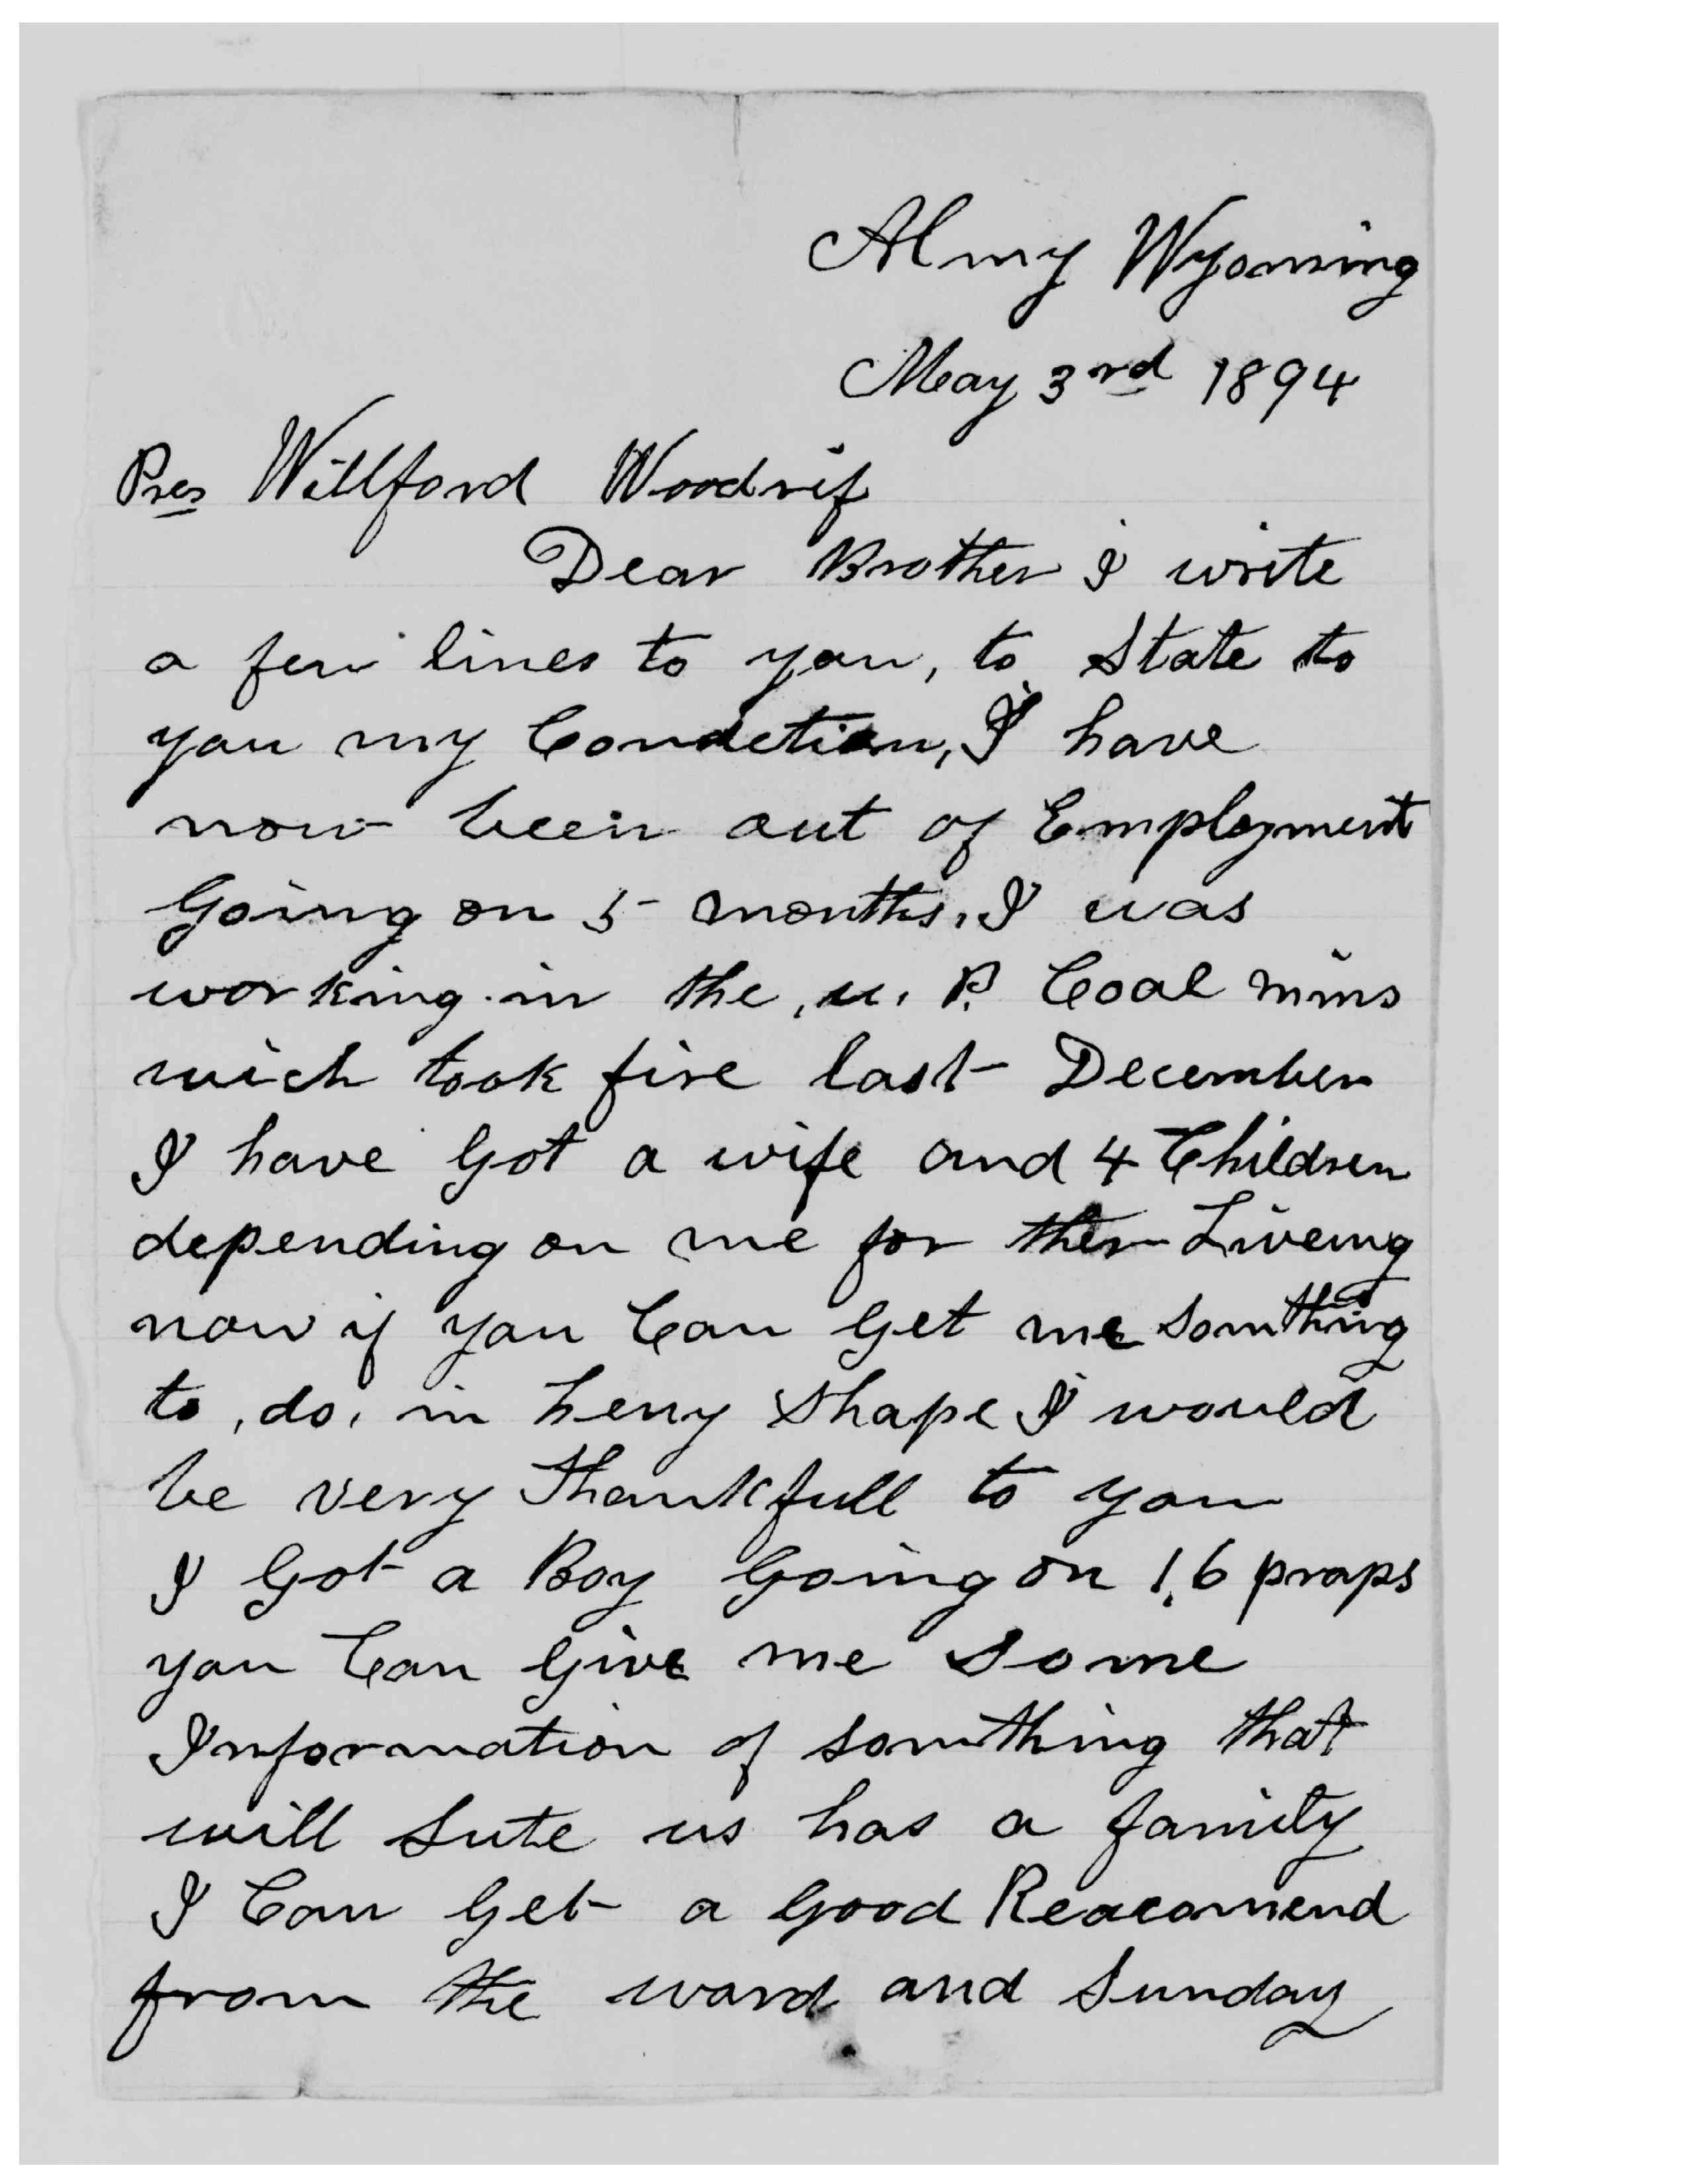 Almy Wyoming
May 3rd 1894
Pres Willford Woodrif
Dear Brother I write
a few lines to you, to State to
you my Condction, I have
now been out of Employment
Going on 5 months, I was
working in the, u. P. Coal mins
wich took fire last December
I have Got a wife and 4 Children
depending on me for ther Liveing
now if you Can Get me Somthing
to, do, in heny shape I would
be very thankfull to you
I Got a Boy Going on 16 praps
you Can Give me some
Information of somthing that
will Sute us has a family
I Can Get a Good Reacomend
from the ward and Sunday